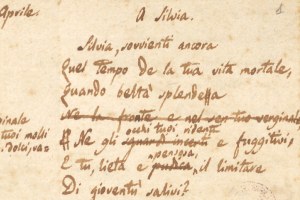 Aprile.
A Silvia.
1
Silvia, sovvienti ancora
Quel tempo De la tua vita mortale,
Quando beltà splendea
Ne la fronte e nel sen tuo verginale
occhi tuoi ridenti
E Ne gli sguardi incerti e fuggitivi,
tuoi molli
dolci,
pensosa,
E tu, lieta e pudica, il limitare
Di gioventù salivi?